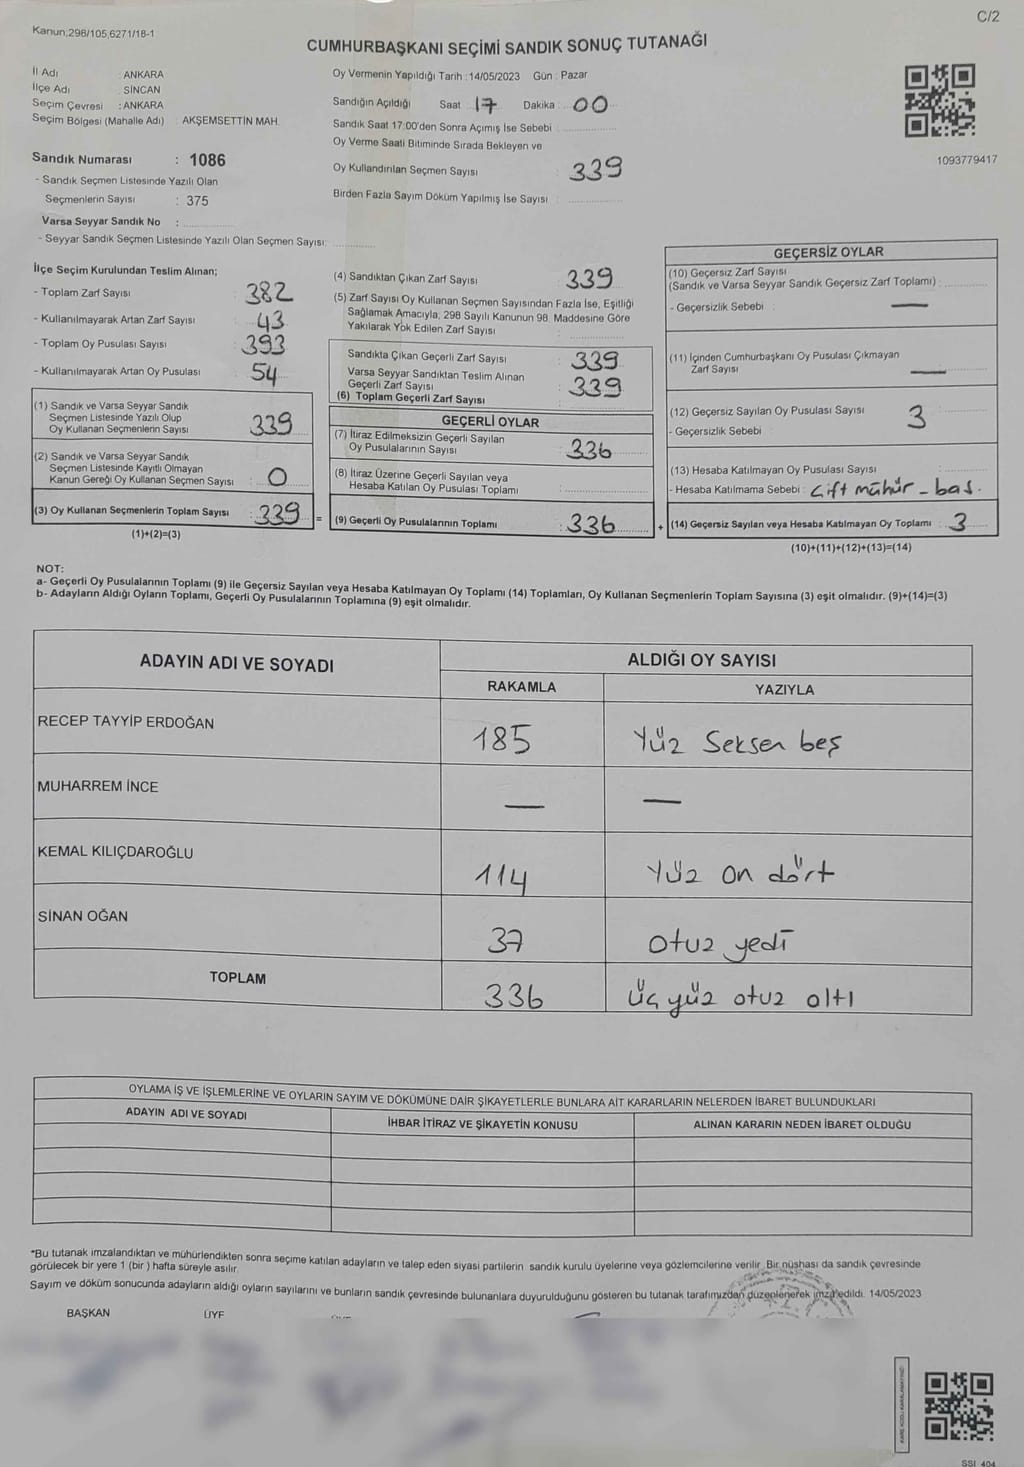 C/2
Kanun;298/105,6271/18-1
CUMHURBAŞKANI SEÇİMİ SANDIK SONUÇ TUTANAĞI
İl Adı : ANKARA
İlçe Adı : SİNCAN
Seçim Çevresi : ANKARA
Seçim Bölgesi (Mahalle Adı) : AKŞEMSETTİN MAH.
Oy Vermenin Yapıldığı Tarih :14/05/2023 Gün : Pazar
Sandığın Açıldığı Saat 17 Dakika 00
Sandık Saat 17:00'den Sonra Açımış İse Sebebi
Oy Verme Saati Bitiminde Sırada Bekleyen ve
Oy Kullandırılan Seçmen Sayısı : 339
Birden Fazla Sayım Döküm Yapılmış İse Sayısı :
1093779417
Sandık Numarası : 1086
- Sandık Seçmen Listesinde Yazılı Olan
Seçmenlerin Sayısı : 375
Varsa Seyyar Sandık No :
- Seyyar Sandık Seçmen Listesinde Yazılı Olan Seçmen Sayısı:
İlçe Seçim Kurulundan Teslim Alınan;
- Toplam Zarf Sayısı 382
- Kullanılmayarak Artan Zarf Sayısı 43
- Toplam Oy Pusulası Sayısı 393
- Kullanılmayarak Artan Oy Pusulası 54
(1) Sandık ve Varsa Seyyar Sandık
Seçmen Listesinde Yazılı Olup
Oy Kullanan Seçmenlerin Sayısı 339
(2) Sandık ve Varsa Seyyar Sandık
Seçmen Listesinde Kayıtlı Olmayan
Kanun Gereği Oy Kullanan Seçmen Sayısı : 0
(3) Oy Kullanan Seçmenlerin Toplam Sayısı : 339 =
(1)+(2)=(3)
(4) Sandıktan Çıkan Zarf Sayısı : 339
(5) Zarf Sayısı Oy Kullanan Seçmen Sayısından Fazla İse, Eşitliği
Sağlamak Amacıyla, 298 Sayılı Kanunun 98. Maddesine Göre
Yakılarak Yok Edilen Zarf Sayısı :
Sandıkta Çıkan Geçerli Zarf Sayısı : 339
Varsa Seyyar Sandıktan Teslim Alınan
Geçerli Zarf Sayısı : 339
(6) Toplam Geçerli Zarf Sayısı
GEÇERLİ OYLAR
(7) İtiraz Edilmeksizin Geçerli Sayılan
Oy Pusulalarının Sayısı : 336
(8) İtiraz Üzerine Geçerli Sayılan veya
Hesaba Katılan Oy Pusulası Toplamı :
(9) Geçerli Oy Pusulalarının Toplamı : 336 +
GEÇERSİZ OYLAR
(10) Geçersiz Zarf Sayısı
(Sandık ve Varsa Seyyar Sandık Geçersiz Zarf Toplamı) :
- Geçersizlik Sebebi : —
(11) İçinden Cumhurbaşkanı Oy Pusulası Çıkmayan
Zarf Sayısı —
(12) Geçersiz Sayılan Oy Pusulası Sayısı 3
- Geçersizlik Sebebi :
(13) Hesaba Katılmayan Oy Pusulası Sayısı :
- Hesaba Katılmama Sebebi : Çift mühür - bas.
(14) Geçersiz Sayılan veya Hesaba Katılmayan Oy Toplamı : 3
(10)+(11)+(12)+(13)=(14)
NOT:
a- Geçerli Oy Pusulalarının Toplamı (9) ile Geçersiz Sayılan veya Hesaba Katılmayan Oy Toplamı (14) Toplamları, Oy Kullanan Seçmenlerin Toplam Sayısına (3) eşit olmalıdır. (9)+(14)=(3)
b- Adayların Aldığı Oyların Toplamı, Geçerli Oy Pusulalarının Toplamına (9) eşit olmalıdır.
ADAYIN ADI VE SOYADI ALDIĞI OY SAYISI
RAKAMLA YAZIYLA
RECEP TAYYİP ERDOĞAN 185 Yüz Seksen beş
MUHARREM İNCE — —
KEMAL KILIÇDAROĞLU 114 Yüz on dört
SİNAN OĞAN 37 otuz yedi
TOPLAM 336 üç yüz otuz altı
OYLAMA İŞ VE İŞLEMLERİNE VE OYLARIN SAYIM VE DÖKÜMÜNE DAİR ŞİKAYETLERLE BUNLARA AİT KARARLARIN NELERDEN İBARET BULUNDUKLARI
ADAYIN ADI VE SOYADI İHBAR İTİRAZ VE ŞİKAYETİN KONUSU ALINAN KARARIN NEDEN İBARET OLDUĞU
*Bu tutanak imzalandıktan ve mühürlendikten sonra seçime katılan adayların ve talep eden siyasi partilerin sandık kurulu üyelerine veya gözlemcilerine verilir. Bir nüshası da sandık çevresinde
görülecek bir yere 1 (bir ) hafta süreyle asılır.
Sayım ve döküm sonucunda adayların aldığı oyların sayılarını ve bunların sandık çevresinde bulunanlara duyurulduğunu gösteren bu tutanak tarafımızdan düzenlenerek imza edildi. 14/05/2023
BAŞKAN ÜYE
KARE KODU KARALAMAYINIZ!
SSI 404